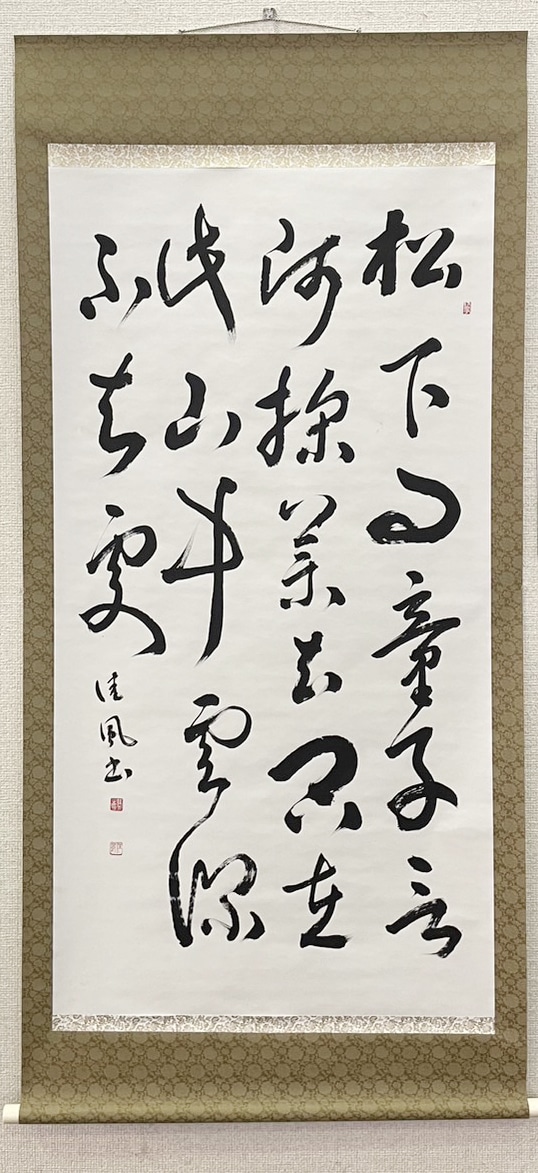 松下問童子言
師採藥去只在
此山中雲深
不知處
佳風書